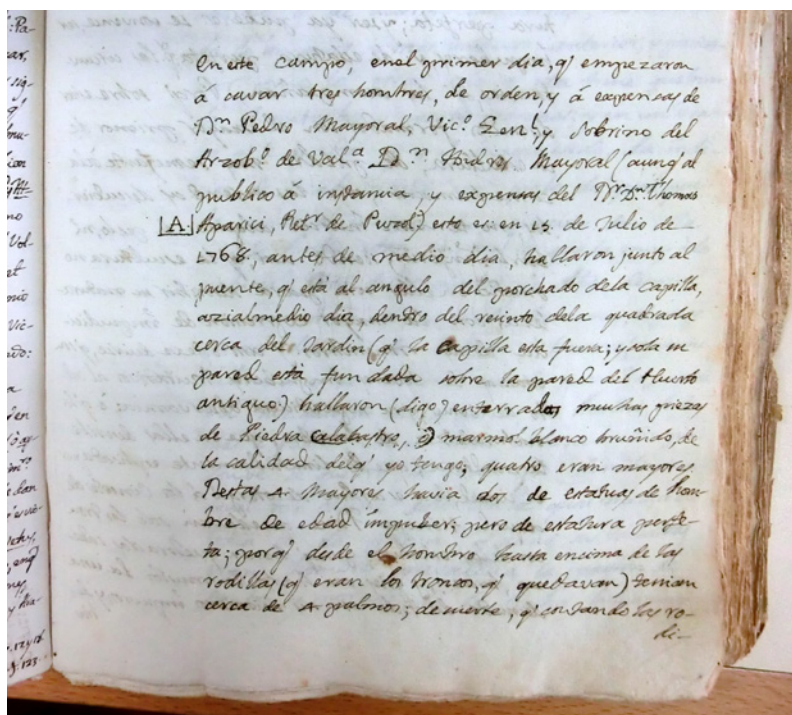 En este campo, enel primer dia, q̃ empezaron
á cavar tres hombres, de orden, y á expensas de
Dⁿ Pedro Mayoral, Vic.º Gen.l y Sobrino del
Arzob.º de Val.a Dⁿ Andres Mayoral (aunq̃ al
publico á instancia, y expensas del Dr. Dn. Thomas
[A] Aparici, Ret.r de Puzol) esto es en 15. de Julio de
1768, antes de medio dia, hallaron junto al
puente, q̃ está al angulo del porchado dela capilla,
azialmedio dia, dentro del recinto dela quadrada
cerca del Jardin (q̃ la Capilla esta fuera; y sola su
pared está fundada sobre la pared del Huerto
antiguo) hallaron (digo) enterradas muchas piezas
de Piedra alabastro, ó marmol blanco bruñido, de
la calidad delq̃ yo tengo; quatro eran mayores.
Destas 4. Mayores havia dos de estatuas de hom-
bre de edad impuber; pero de estatura perfe-
ta; porq̃ desde el hombro hasta encima de las
rodillas (q̃ eran los troncos, q̃ quedavan) tenian
cerca de 4 palmos; desuerte, q̃ contando las ro-
di-